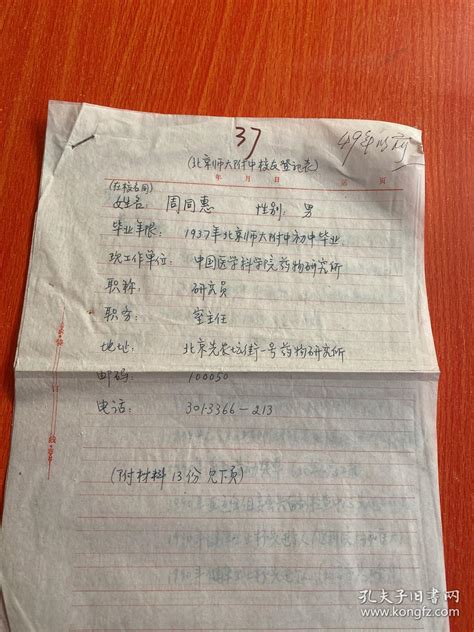 37
49年以前
(北京师大附中校友登记表)
年 月 日 第 页
(在校名同)
姓名: 周同惠 性别: 男
毕业年限: 1937年北京师大附中初中毕业
现工作单位: 中国医学科学院药物研究所
职称: 研究员
职务: 室主任
地址: 北京先农坛街一号药物研究所
邮码: 100050
电话: 3013366-213
(附材料13份 见下页)
孔夫子旧书网
www.kongfz.com